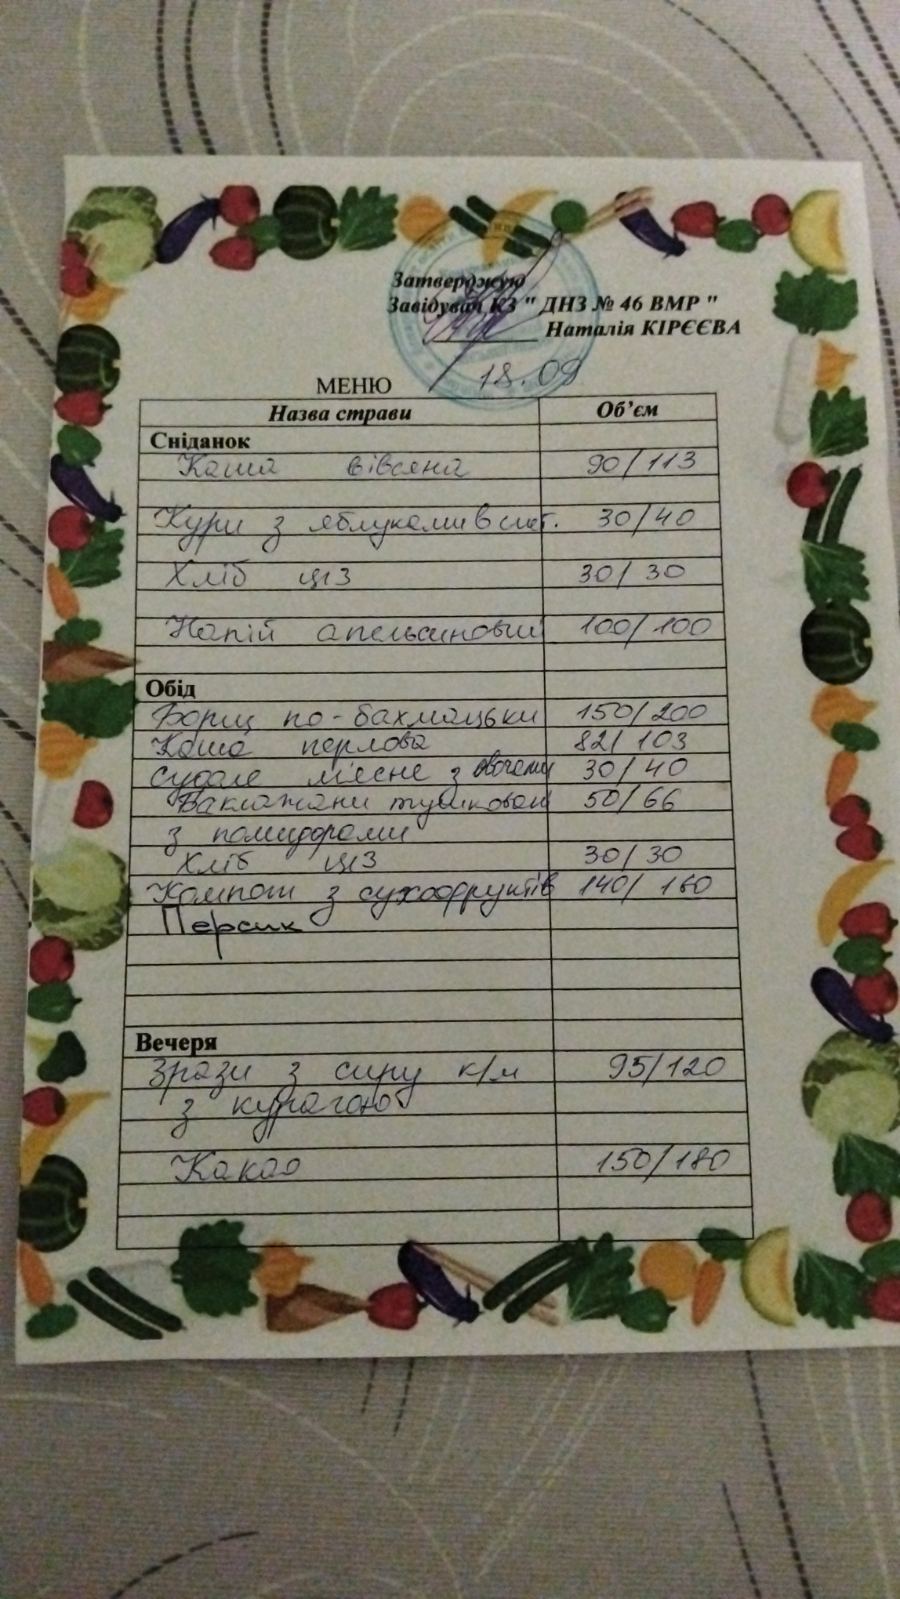 Затверджую
Завідувач КЗ " ДНЗ № 46 ВМР "
Наталія КІРЄЄВА
18.09
МЕНЮ
Назва страви Об’єм
Сніданок
Каша вівсяна 90/113
Кури з яблуками в смет. 30/40
Хліб ц/з 30/30
Напій апельсиновий 100/100
Обід
Борщ по-бахмацьки 150/200
Каша перлова 82/103
Суфле м'ясне з овочами 30/40
Баклажани тушковані 50/66
з помидорами
Хліб ц/з 30/30
Компот з сухофруктів 140/160
Персик
Вечеря
Зрази з сиру к/м 95/120
з курагою
Какао 150/180